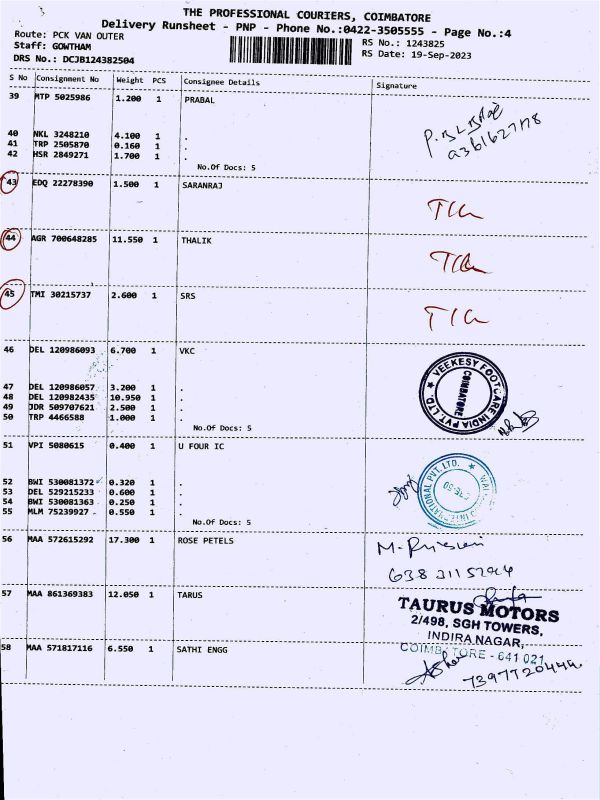 THE PROFESSIONAL COURIERS, COIMBATORE
Delivery Runsheet - PNP - Phone No.:0422-3505555 - Page No.:4
Route: PCK VAN OUTER
Staff: GOWTHAM
DRS No.: DCJB124382504
RS No.: 1243825
RS Date: 19-Sep-2023
S No Consignment No Weight PCS Consignee Details Signature
39 MTP 5025986 1.200 1 PRABAL
40 NKL 3248210 4.100 1 .
41 TRP 2505870 0.160 1 .
42 HSR 2849271 1.700 1 .
No.Of Docs: 5
43 EDQ 22278390 1.500 1 SARANRAJ
44 AGR 700648285 11.550 1 THALIK
45 TMI 30215737 2.600 1 SRS
46 DEL 120986093 6.700 1 VKC
VEEKESY FOOTCARE INDIA PVT LTD.
COIMBATORE
47 DEL 120986057 3.200 1 .
48 DEL 120982435 10.950 1 .
49 JDR 509707621 2.500 1 .
50 TRP 4466588 1.000 1 .
No.Of Docs: 5
51 VPI 5080615 0.400 1 U FOUR IC
INTERNATIONAL PVT. LTD.
52 BWI 530081372 0.320 1 .
53 DEL 529215233 0.600 1 .
54 BWI 530081363 0.250 1 .
55 MLM 75239927 0.550 1 .
No.Of Docs: 5
56 MAA 572615292 17.300 1 ROSE PETELS
57 MAA 861369383 12.050 1 TARUS
TAURUS MOTORS
2/498, SGH TOWERS,
INDIRA NAGAR,
COIMBATORE - 641 021
58 MAA 571817116 6.550 1 SATHI ENGG